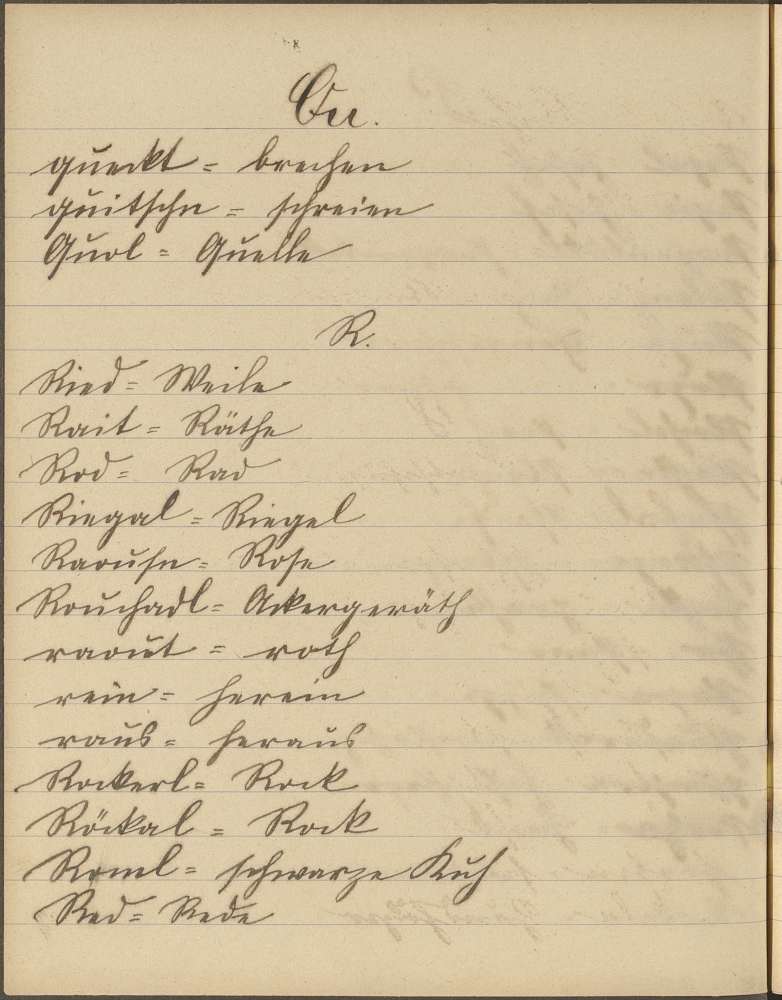 Qu.
queckt = brechen
quitschn = schreien
Quol = Quelle
R.
Ried = Weile
Rait = Räthe
Rod = Rad
Riegal = Riegel
Raousn = Rose
Rouchadl = Ackergeräth
raout = roth
rein = herein
raus = heraus
Rockerl = Rock
Röckal = Rock
Roml = schwarze Kuh
Red = Rede